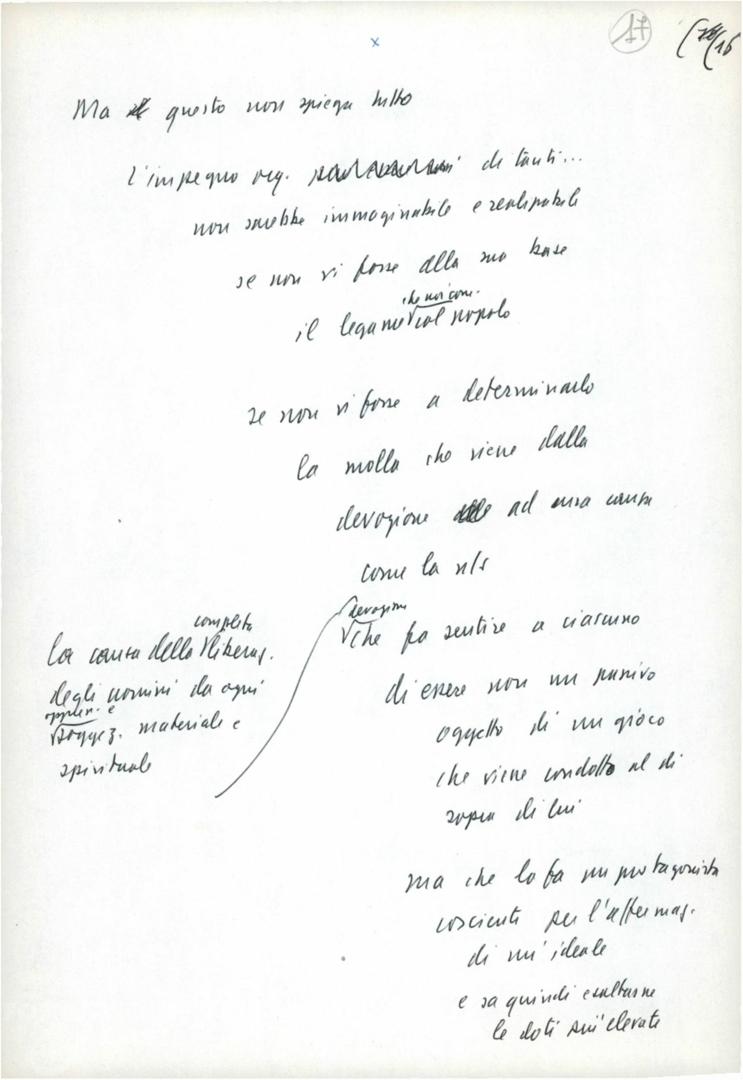 17
Ma questo non spiega tutto
L'impegno org. di tanti...
non sarebbe immaginabile e realizzabile
se non vi fosse alla sua base
che noi con.
il legame col popolo
se non vi fosse a determinarlo
la molla che viene dalla
devozione ad una causa
come la n/s
completa
La causa della liberaz.
degli uomini da ogni
oppres. e
soggez. materiale e
spirituale
devozione
che fa sentire a ciascuno
di essere non un passivo
oggetto di un gioco
che viene condotto al di
sopra di lui
ma che lo fa un protagonista
cosciente per l'affermaz.
di un'ideale
e sa quindi esaltarne
le doti più elevate